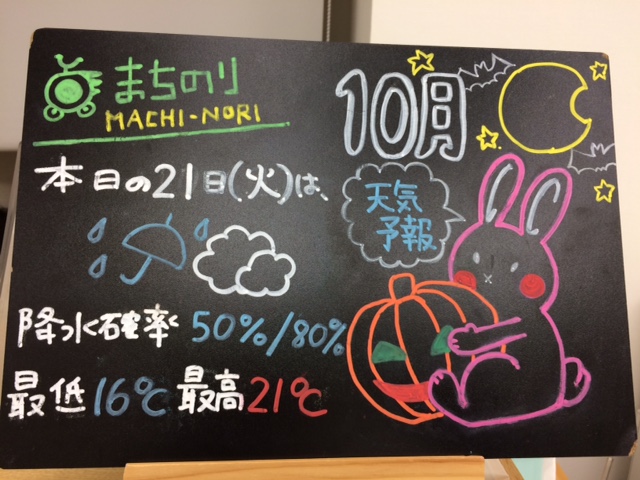 まちのり
MACHI-NORI
10月
本日の21日(火)は、
天気
予報
降水確率 50%/80%
最低16℃ 最高21℃